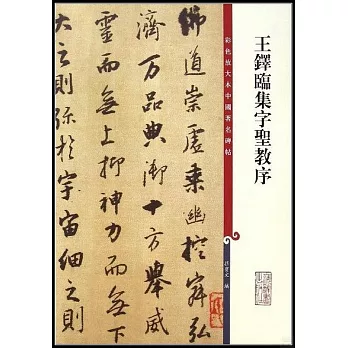 王鐸臨集字聖教序
彩色放大本中國著名碑帖
孫寶文 編
佛道崇虛乘幽控寂弘
濟万品典御十方舉威
靈而無上抑神力而無下
大之則弥於宇宙細之